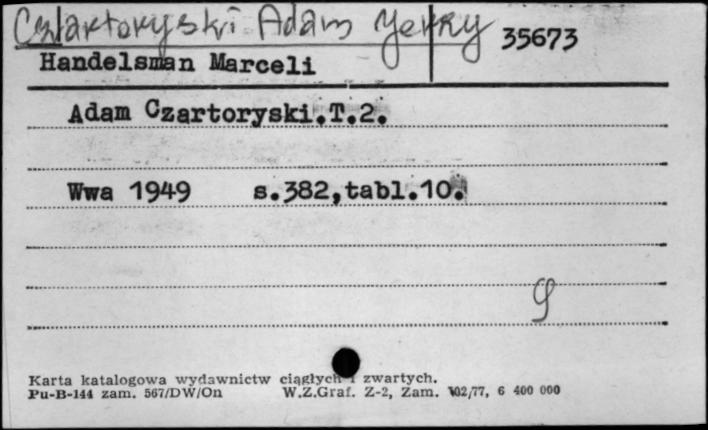 Czartoryski Adam Jerzy
35673
Handelsman Marceli
Adam Czartoryski.T.2.
Wwa 1949 s.382,tabl.10.
Karta katalogowa wydawnictw ciągłych i zwartych.
Pu-B-144 zam. 567/DW/On W.Z.Graf. Z-2, Zam. 102/77, 6 400 000